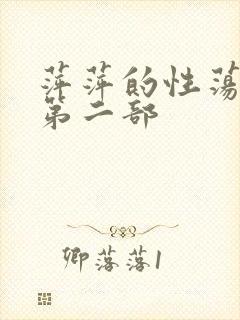 萍萍的性荡
第二部
卿落落1